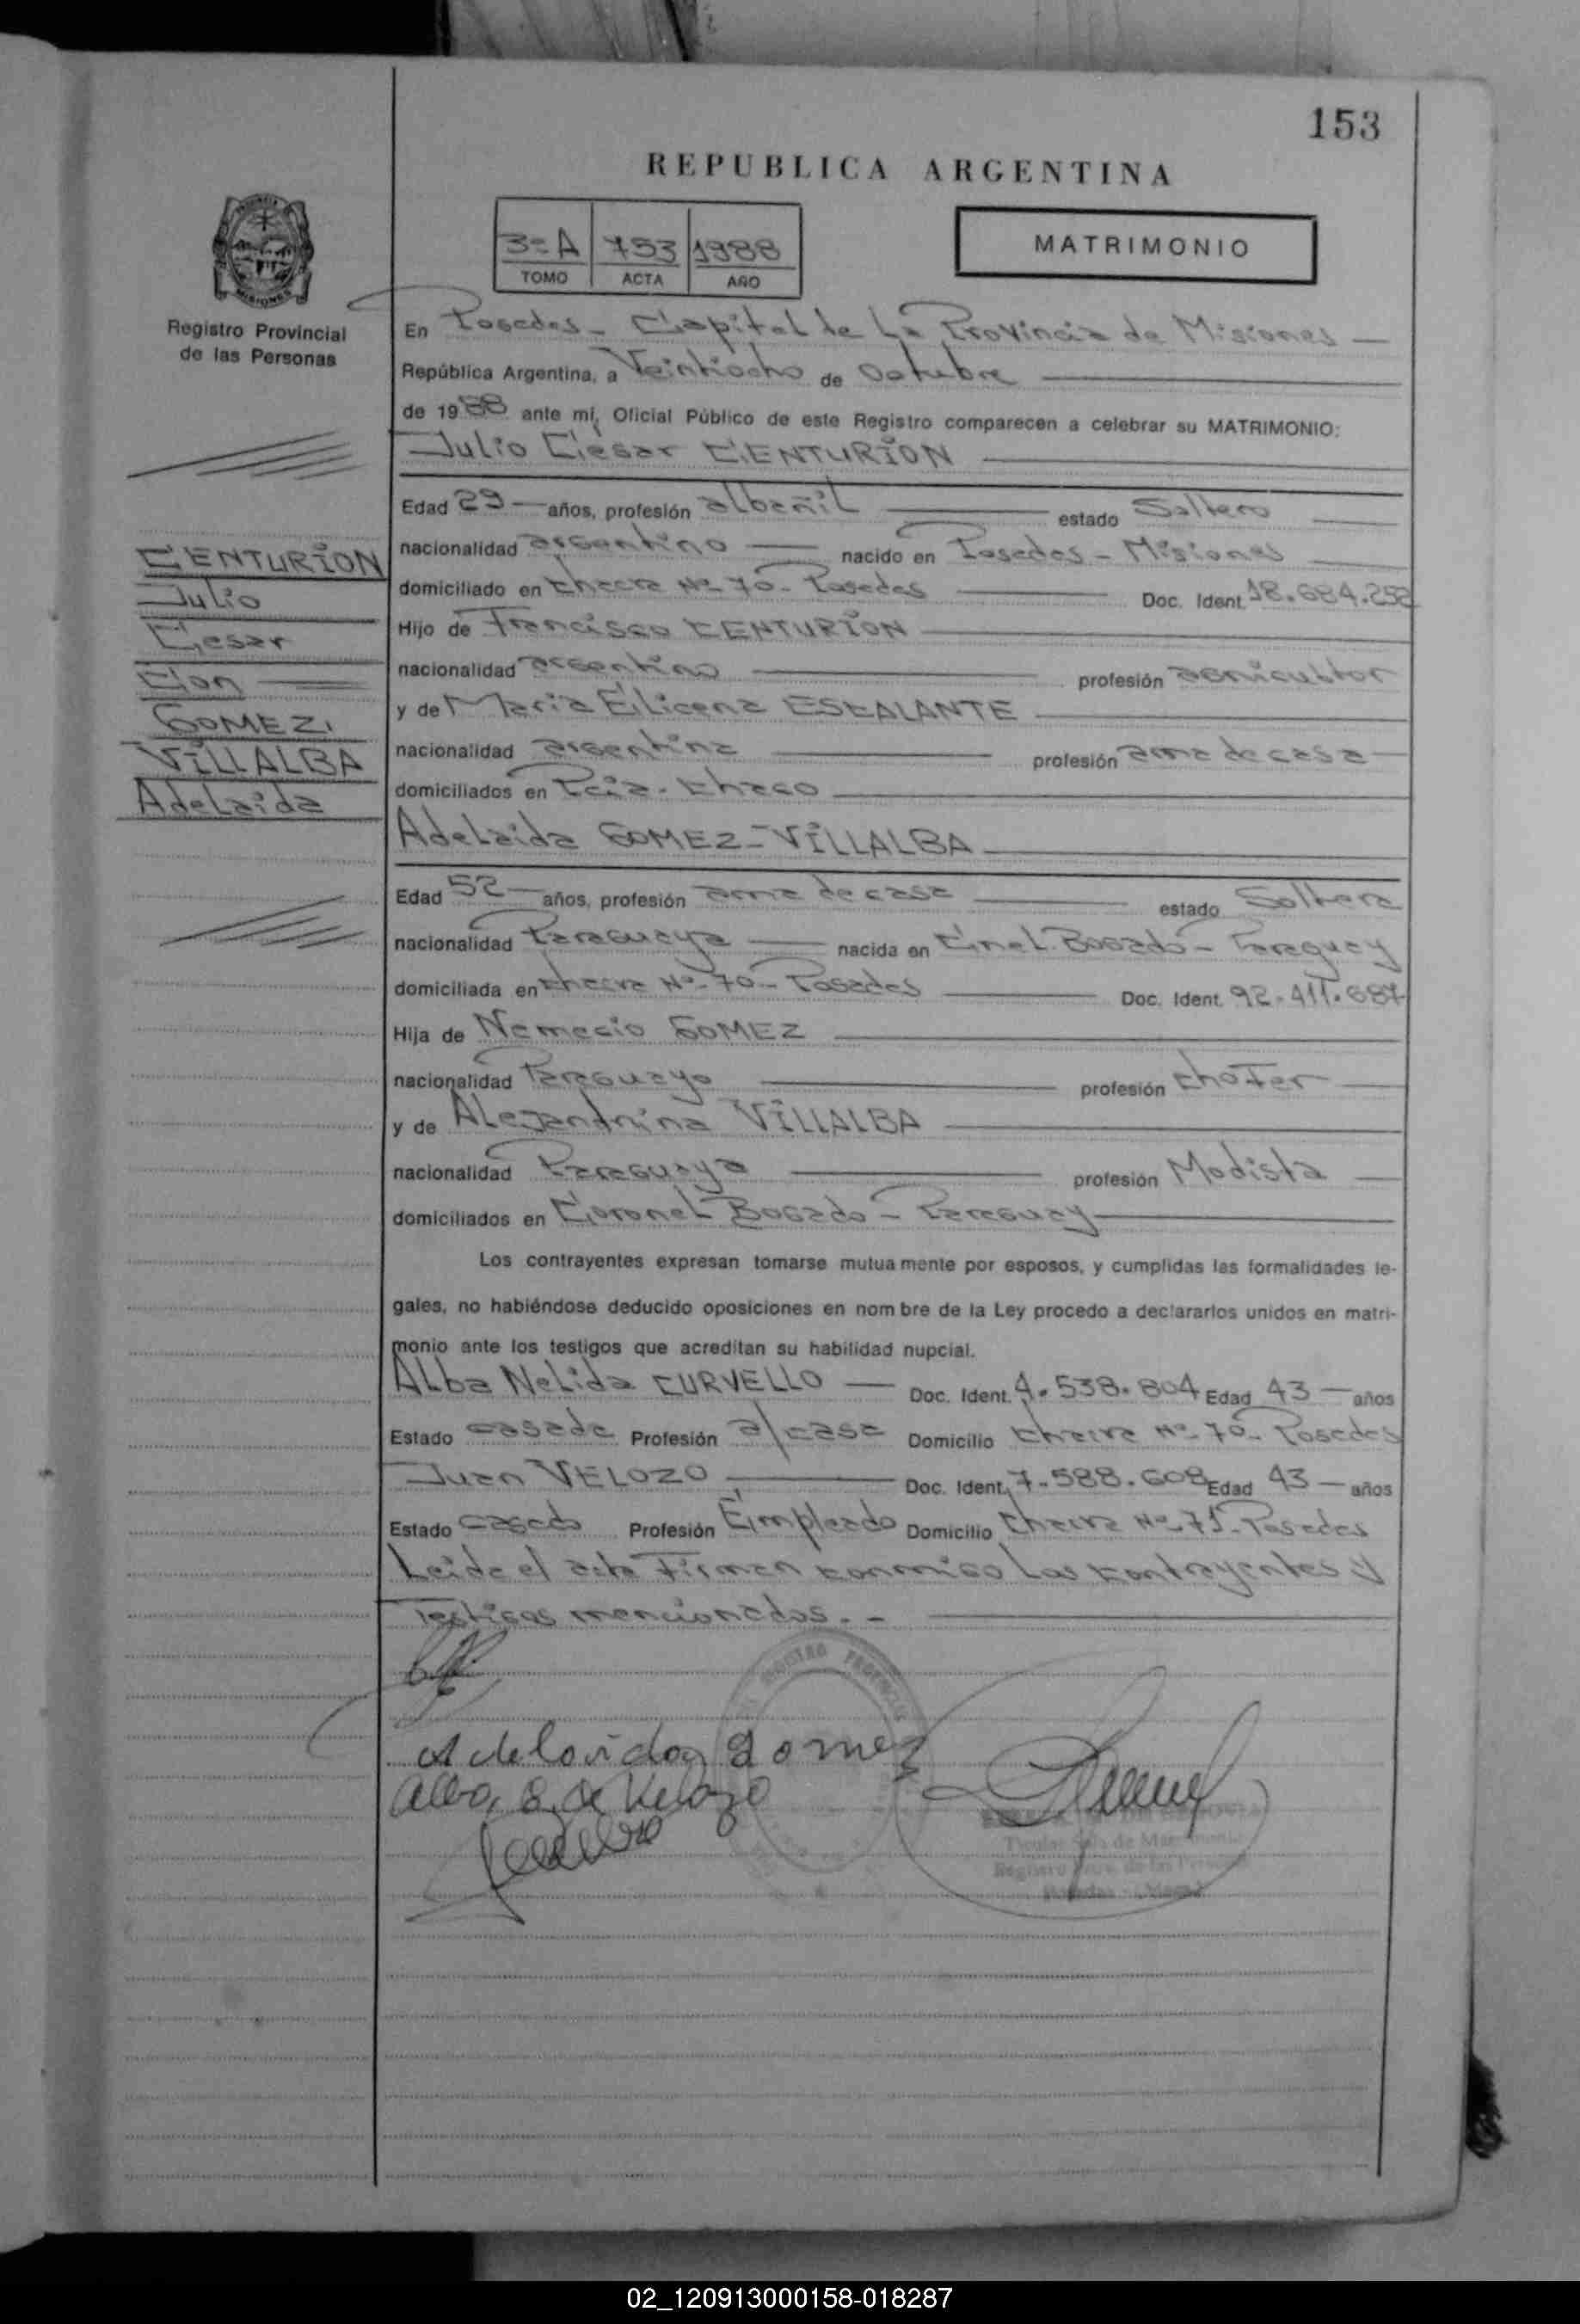 153
REPUBLICA ARGENTINA
3=A 753 1988
TOMO ACTA AÑO
MATRIMONIO
Registro Provincial
de las Personas
En Posadas - Capital de La Provincia de Misiones
República Argentina, a Veintiocho de Octubre
de 1988 ante mí, Oficial Público de este Registro comparecen a celebrar su MATRIMONIO:
Julio Cesar CENTURION
Edad 29 años, profesión albañil estado Soltero
nacionalidad argentino nacido en Posadas - Misiones
domiciliado en chacra Nº 70 - Posadas Doc. Ident. 18.684.252
Hijo de Francisco CENTURION
nacionalidad argentino profesión agricultor
y de Maria Elicena ESCALANTE
nacionalidad argentina profesión ama de casa
domiciliados en - Chaco
Adelaida GOMEZ - VILLALBA
Edad 52 años, profesión ama de casa estado Soltera
nacionalidad Paraguaya nacida en Cnel. Bogado - Paraguay
domiciliada en chacra Nº 70 - Posadas Doc. Ident. 92.411.687
Hija de Nemecio GOMEZ
nacionalidad Paraguayo profesión chofer
y de Alejandrina VILLALBA
nacionalidad Paraguaya profesión Modista
domiciliados en Coronel Bogado - Paraguay
Los contrayentes expresan tomarse mutuamente por esposos, y cumplidas las formalidades le-
gales, no habiéndose deducido oposiciones en nombre de la Ley procedo a declararlos unidos en matri-
monio ante los testigos que acreditan su habilidad nupcial.
Alba Nelida CURVELLO Doc. Ident. 4.538.804 Edad 43 años
Estado casada Profesión a/casa Domicilio chacra Nº 70 - Posadas
Juan VELOZO Doc. Ident. 7.588.608 Edad 43 años
Estado casado Profesión Empleado Domicilio Chacra Nº 71 - Posadas
Leida el acta Firman conmigo Los contrayentes y
Testigos mencionados. -
CENTURION
Julio
Cesar
Con
GOMEZ,
VILLALBA
Adelaida
Adelaida gomez
Alba de Velozo
Titular Sala de Matrimonio
Registro Prov. de las Personas
02_120913000158-018287